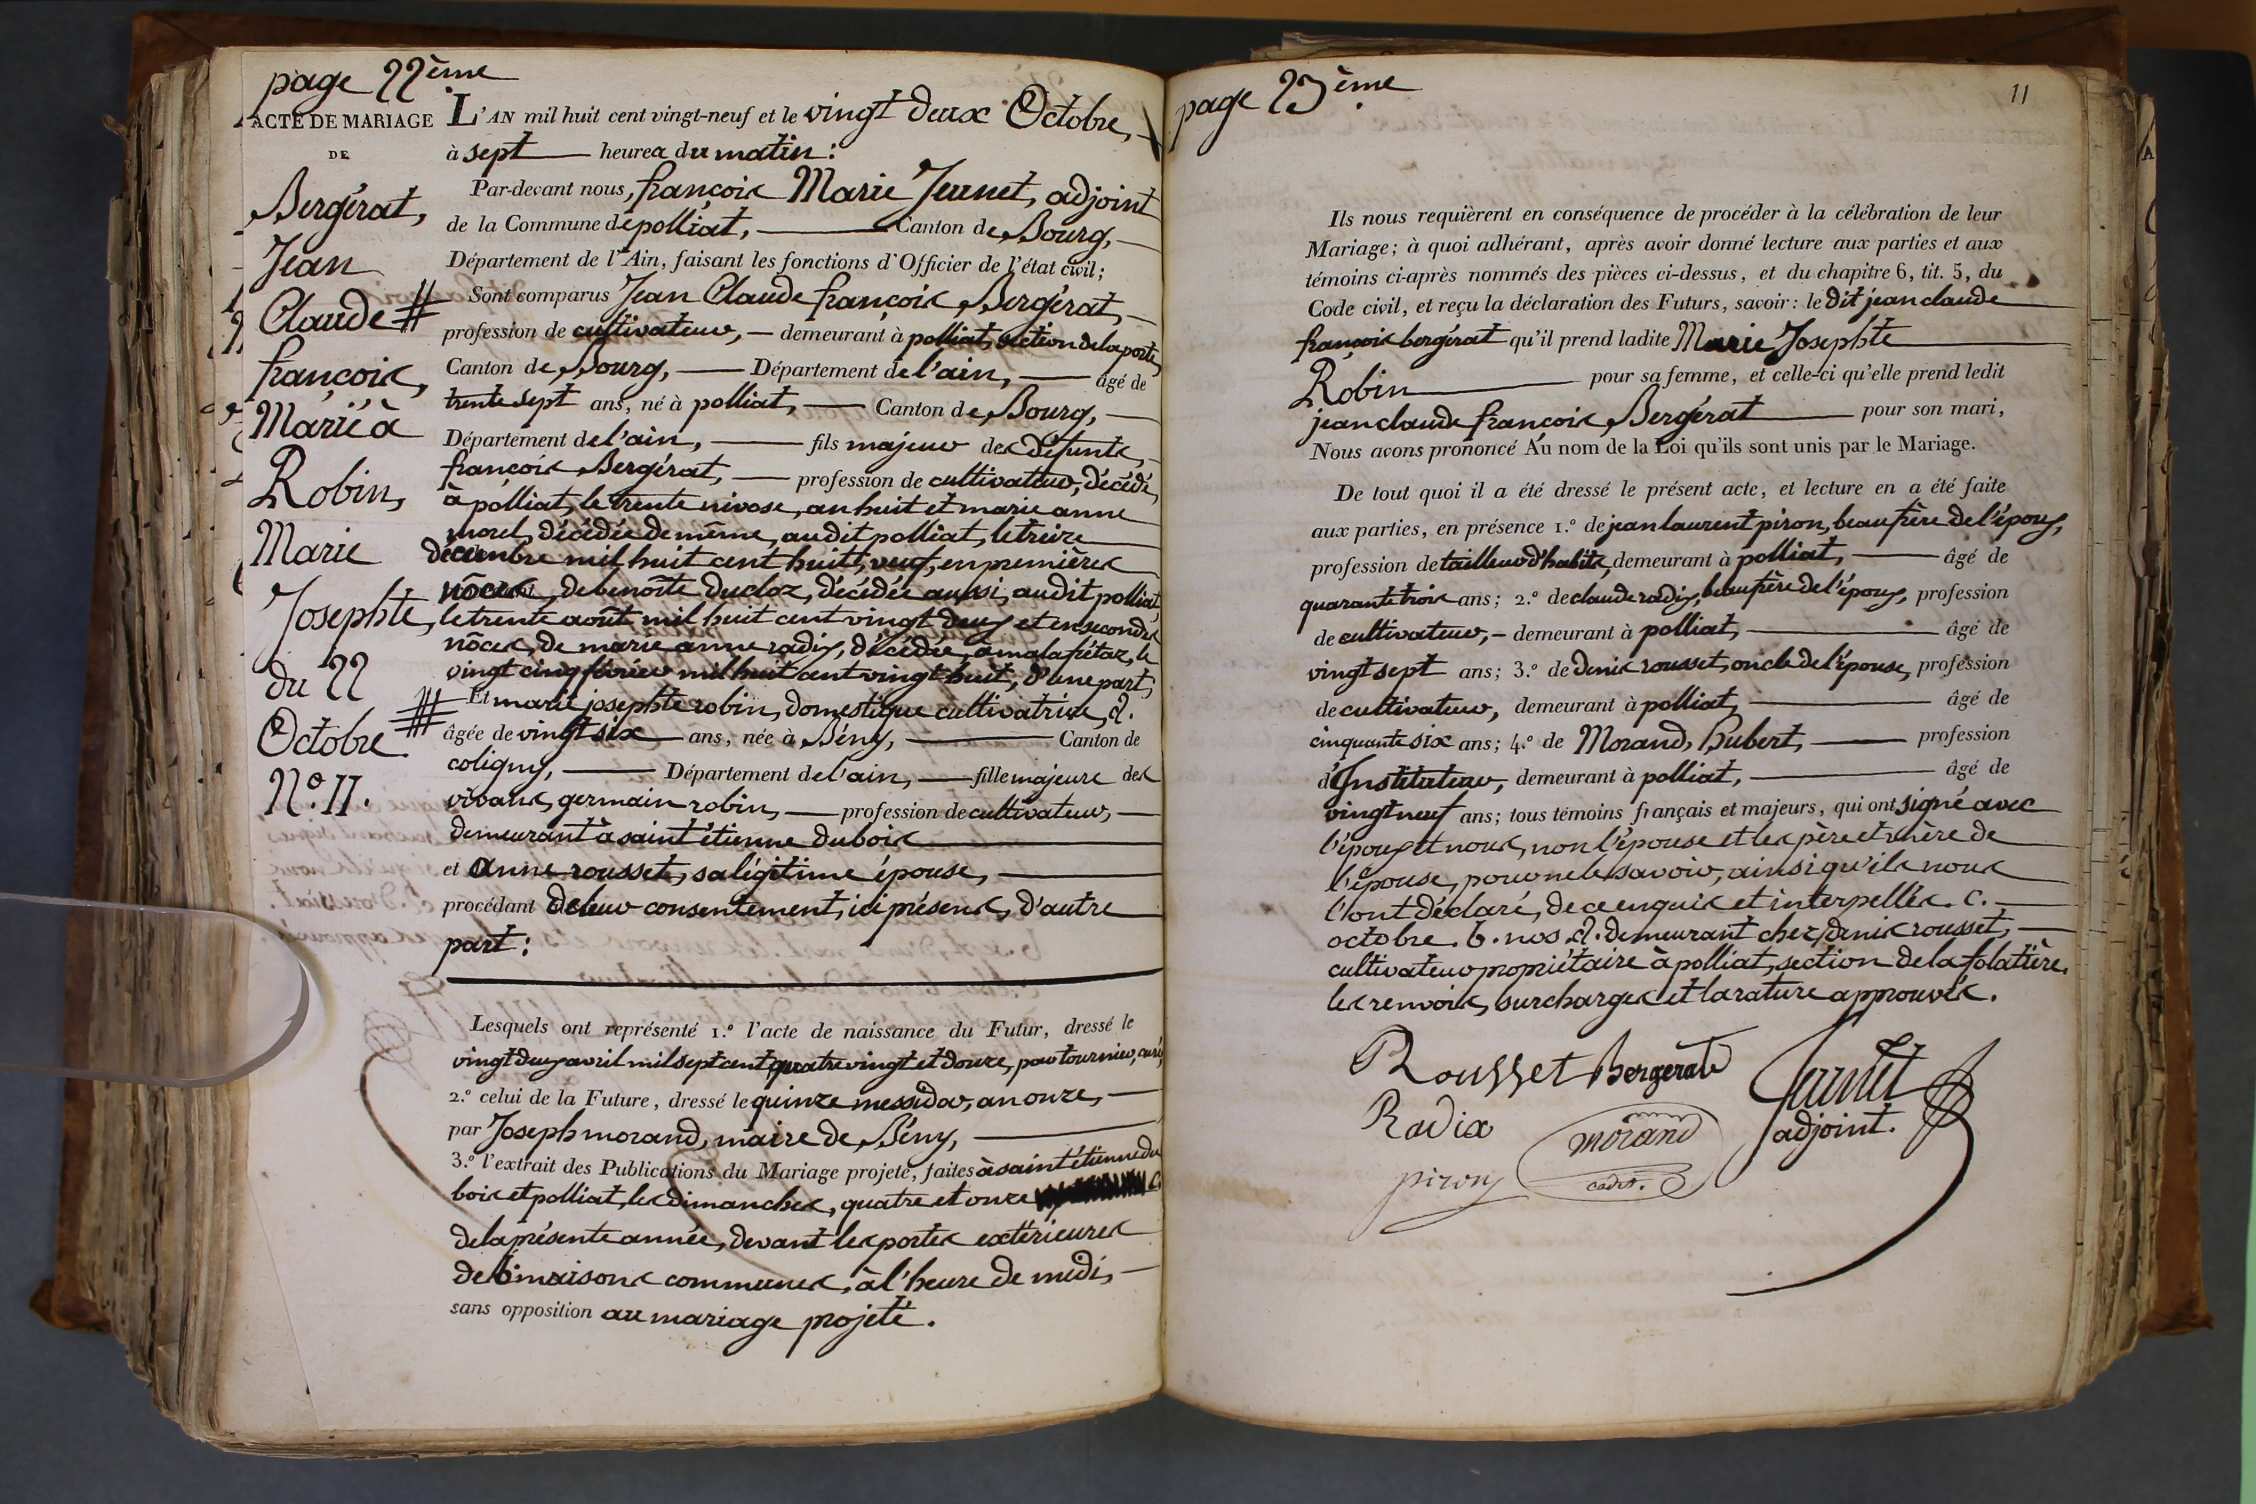 page 22ème
ACTE DE MARIAGE
DE
Bergérat,
Jean
Claude
françois,
Marié à
Robin,
Marie
Josephte,
du 22
Octobre.
N.o 11.
L'AN mil huit cent vingt-neuf et le vingt deux Octobre,
à sept heures du matin :
Par-devant nous, françois Marie Jeunet, adjoint
de la Commune de polliat, Canton de Bourg,
Département de l'Ain, faisant les fonctions d'Officier de l'état civil;
Sont comparus Jean Claude françois Bergérat,
profession de cultivateur, demeurant à polliat, section de la porte,
Canton de Bourg, Département de l'ain, âgé de
trente sept ans, né à polliat, Canton de Bourg,
Département de l'ain, fils majeur des défunts,
françois Bergérat, profession de cultivateur, décédé,
à polliat, le trente nivose, an huit et marie anne
morel, décédée de même, audit polliat, le treize
décembre mil huit cent huit, veuf, en premières
nôces, de benoîte ducloz, décédée aussi, audit polliat,
le trente août mil huit cent vingt deux et en secondes
nôces, de marie anne radix, décédée, à malafrétaz, le
vingt cinq février mil huit cent vingt huit, d'une part;
Et marie josephte robin, domestique cultivatrice, d.
âgée de vingt six ans, née à Bény, Canton de
coligny, Département de l'ain, fille majeure des
vivans, germain robin, profession de cultivateur,
demeurant à saint étienne du bois
et anne rousset, sa légitime épouse,
procédant de leur consentement, ici présens, d'autre
part :
Lesquels ont représenté 1.o l'acte de naissance du Futur, dressé le
vingt deux avril mil sept cent quatre vingt et douze, par tournier, curé,
2.o celui de la Future, dressé le quinze messidor, an onze,
par Joseph morand, maire de Bény,
3.o l'extrait des Publications du Mariage projeté, faites à saint étienne du
bois et polliat, les dimanches, quatre et onze c.
de la présente année, devant les portes extérieures
de b. maisons communes, à l'heure de midi,
sans opposition au mariage projeté.
page 23ème
11
Ils nous requièrent en conséquence de procéder à la célébration de leur
Mariage; à quoi adhérant, après avoir donné lecture aux parties et aux
témoins ci-après nommés des pièces ci-dessus, et du chapitre 6, tit. 5, du
Code civil, et reçu la déclaration des Futurs, savoir : le dit jean claude
françois bergérat qu'il prend ladite Marie Josephte
Robin pour sa femme, et celle-ci qu'elle prend ledit
jean claude françois Bergérat pour son mari,
Nous avons prononcé Au nom de la Loi qu'ils sont unis par le Mariage.
De tout quoi il a été dressé le présent acte, et lecture en a été faite
aux parties, en présence 1.o de jean laurent piron, beau frère de l'époux,
profession de tailleur d'habits, demeurant à polliat, âgé de
quarante trois ans; 2.o de claude radix, beau frère de l'époux, profession
de cultivateur, demeurant à polliat, âgé de
vingt sept ans; 3.o de denis rousset, oncle de l'épouse, profession
de cultivateur, demeurant à polliat, âgé de
cinquante six ans; 4.o de Morand, hubert, profession
d'Instituteur, demeurant à polliat, âgé de
vingt neuf ans; tous témoins français et majeurs, qui ont signé avec
l'époux et nous, non l'épouse et les père et mère de
l'épouse, pour ne le savoir, ainsi qu'ils nous
l'ont déclaré, de ce enquis et interpellés. c.
octobre. b. nos d. demeurant chez denis rousset,
cultivateur propriétaire à polliat, section de la folatière.
les renvois, surcharges et la rature approuvés.
Rousset Bergerat Jeunet
Radix morand adjoint.
piron cadet.